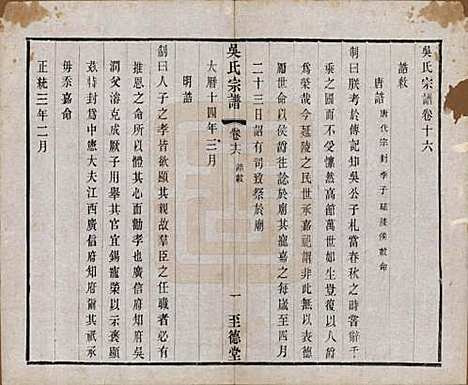 吳氏宗譜卷十六
誥敕
唐誥 唐代宗封季子延陵侯敕命
制曰朕考於傳記知吳公子札當春秋之時辭千
乘之國而不受懍然高館萬世如生覺復以
爲榮哉今延陵之民世承嘉祀謂非此無以表德
勵世命以侯爵往諗於廟其寵嘉之每歲至四月
二十三日詔有司致祭於廟
大曆十四年三月
吳氏宗譜 卷十六 誥敕 一 至德堂
明誥
制曰人子之孝皆欲顯其親羣臣之任職者必有
推恩之命所以體其心而勸孝也廣信府知府吳
潤父濬克成厥子用舉其官宜錫寵榮以示褒顯
茲特封爲中憲大夫江西廣信府知府爾其祇承
毋忝嘉命
正統三年二月